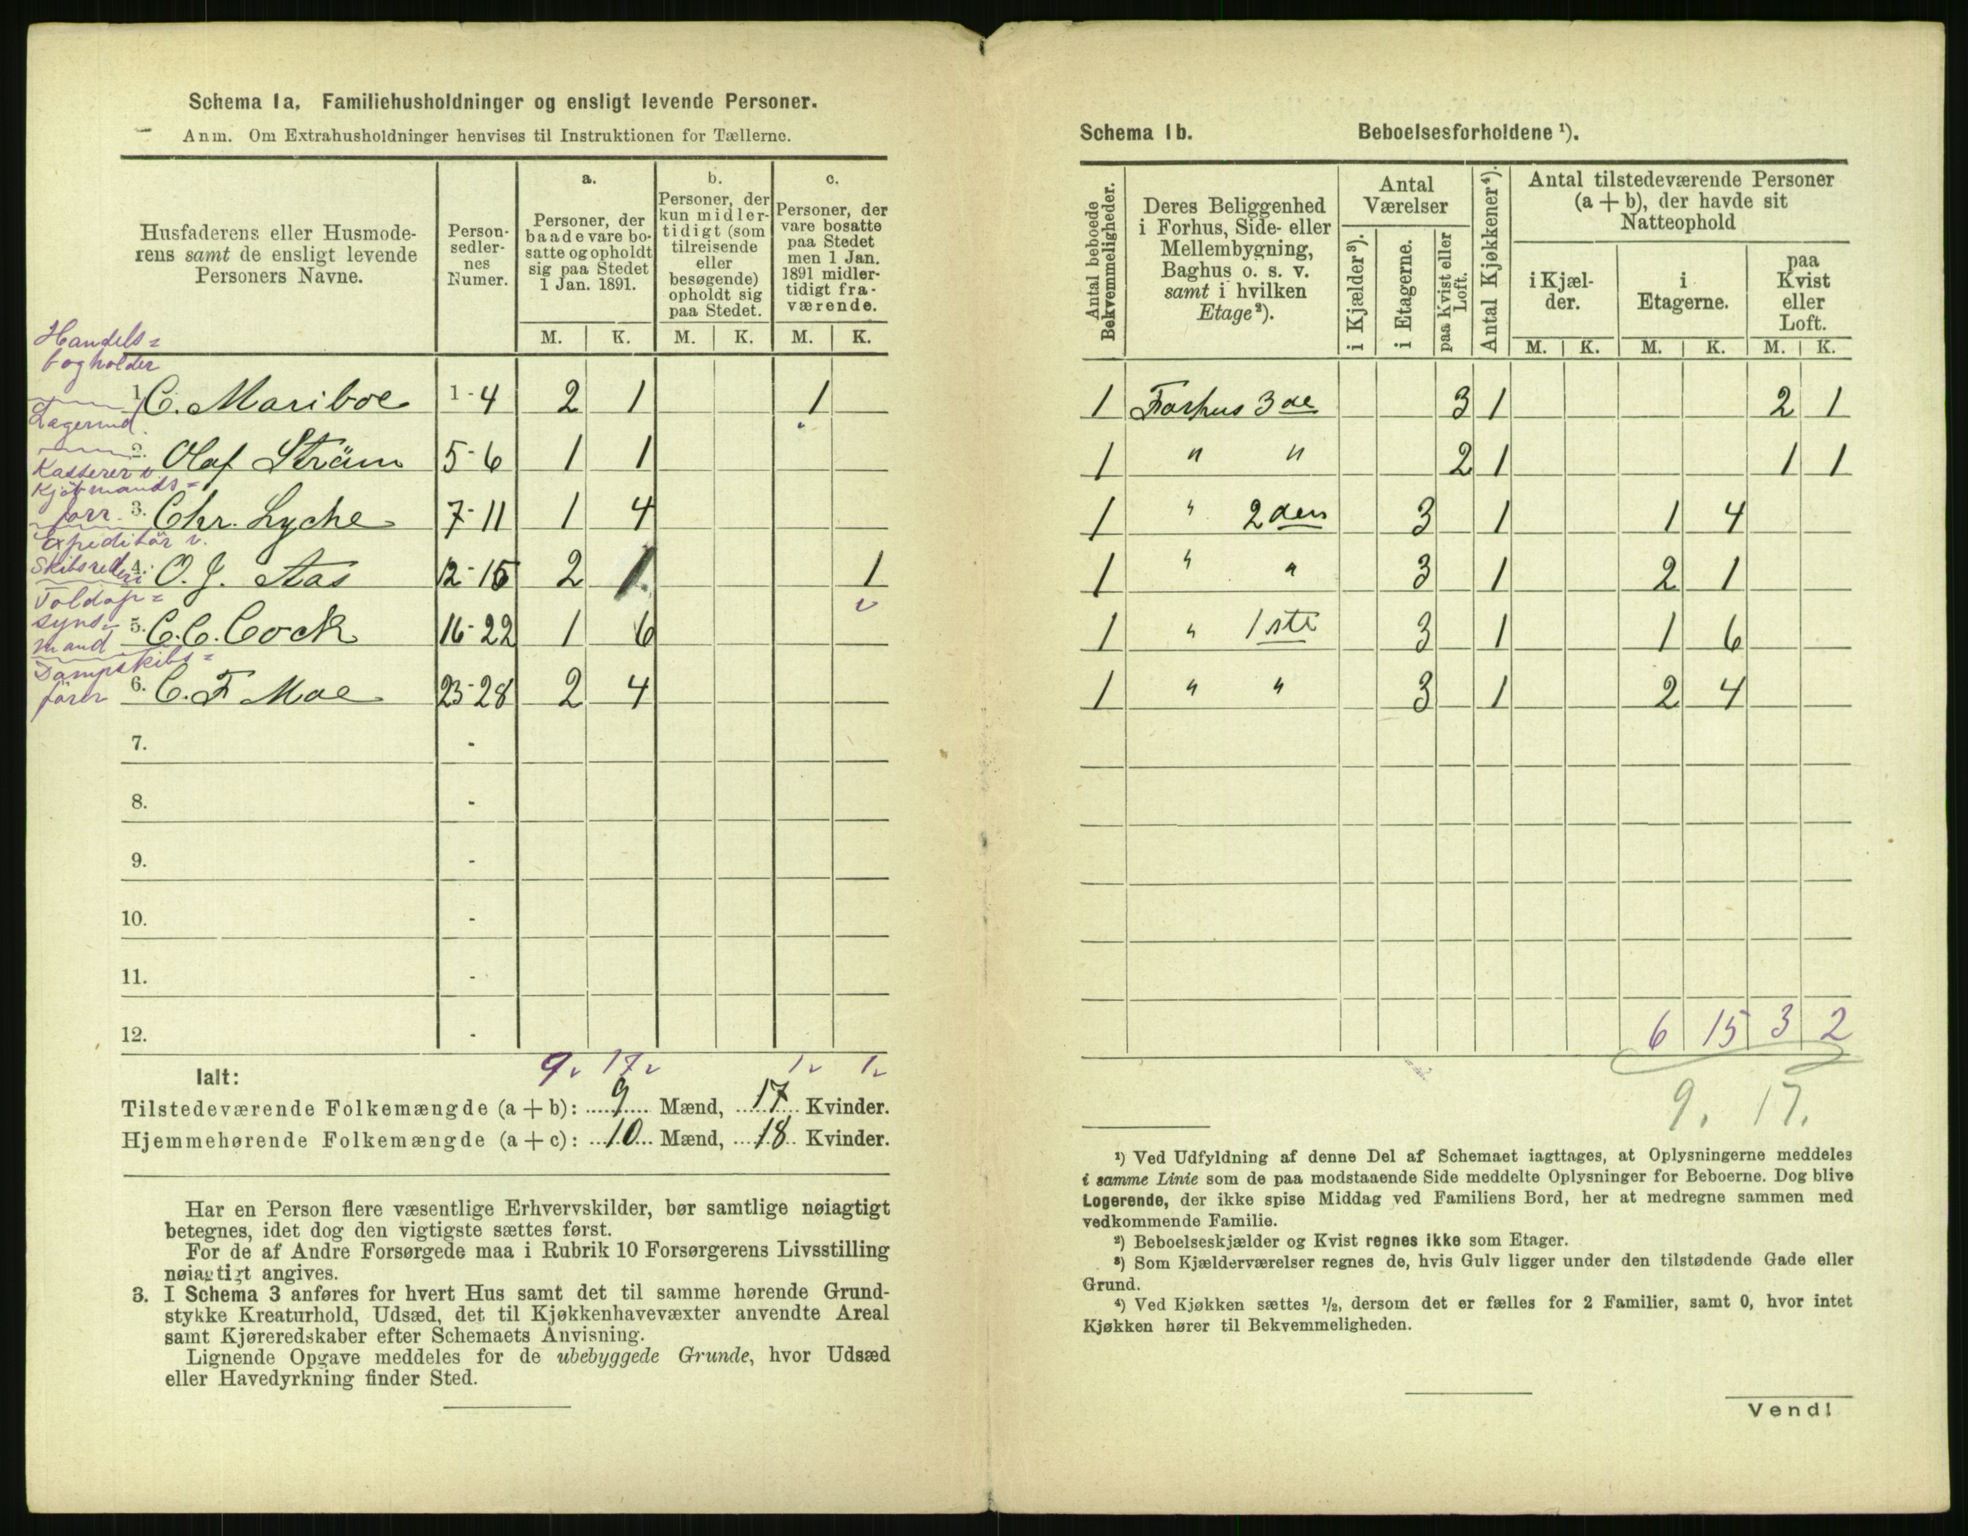 Schema 1a. Familiehusholdninger og ensligt levende Personer.
Anm. Om Extrahusholdninger henvises til Instruktionen for Tællerne.
Husfaderens eller Husmode-
rens samt de ensligt levende
Personers Navne.
Person-
sedler-
nes
Numer.
a.
Personer, der
baade vare bo-
satte og opholdt
sig paa Stedet
1 Jan. 1891.
b.
Personer, der
kun midler-
tidigt (som
tilreisende
eller
besøgende)
opholdt sig
paa Stedet.
c.
Personer, der
vare bosatte
paa Stedet
men 1 Jan.
1891 midler-
tidigt fra-
værende.
M. K. M. K. M. K.
Handels=
bogholder
1. C. Mariboe 1-4 2 1 1
2. Olaf Ström 5-6 1 1
Kasserer v
Kjøbmands=
forr. 3. Chr. Lyche 7-11 1 4
Expeditör v.
Skibsrederi 4. O. J. Aas 12-15 2 1 1
Toldop=
syns-
mand 5. C. C. Cock 16-22 1 6
Dampskibs=
fører 6. C. F Moe 23-28 2 4
7. -
8. -
9. -
10. -
11. -
12. -
9. 17. 1. 1.
Ialt:
Tilstedeværende Folkemængde (a + b): 9 Mænd, 17 Kvinder.
Hjemmehørende Folkemængde (a + c): 10 Mænd, 18 Kvinder.
Har en Person flere væsentlige Erhvervskilder, bør samtlige nøiagtigt
betegnes, idet dog den vigtigste sættes først.
For de af Andre Forsørgede maa i Rubrik 10 Forsørgerens Livsstilling
nøiagtigt angives.
3. I Schema 3 anføres for hvert Hus samt det til samme hørende Grund-
stykke Kreaturhold, Udsæd, det til Kjøkkenhavevæxter anvendte Areal
samt Kjøreredskaber efter Schemaets Anvisning.
Lignende Opgave meddeles for de ubebyggede Grunde, hvor Udsæd
eller Havedyrkning finder Sted.
Schema 1b. Beboelsesforholdene ¹).
Antal beboede
Bekvemmeligheder.
Deres Beliggenhed
i Forhus, Side- eller
Mellembygning,
Baghus o. s. v.
samt i hvilken
Etage²).
Antal
Værelser
i Kjælder³).
i Etagerne.
paa Kvist eller
Loft.
Antal Kjøkkener⁴).
Antal tilstedeværende Personer
(a + b), der havde sit
Natteophold
i Kjæl-
der.
i
Etagerne.
paa
Kvist
eller
Loft.
M. K. M. K. M. K.
1 Forhus 3de 3 1 2 1
1 " " 2 1 1 1
1 " 2den 3 1 1 4
1 " " 3 1 2 1
1 " 1ste 3 1 1 6
1 " " 3 1 2 4
6 15 3 2
9. 17.
¹) Ved Udfyldning af denne Del af Schemaet iagttages, at Oplysningerne meddeles
i samme Linie som de paa modstaaende Side meddelte Oplysninger for Beboerne. Dog blive
Logerende, der ikke spise Middag ved Familiens Bord, her at medregne sammen med
vedkommende Familie.
²) Beboelseskjælder og Kvist regnes ikke som Etager.
³) Som Kjælderværelser regnes de, hvis Gulv ligger under den tilstødende Gade eller
Grund.
⁴) Ved Kjøkken sættes ½, dersom det er fælles for 2 Familier, samt 0, hvor intet
Kjøkken hører til Bekvemmeligheden.
Vend!